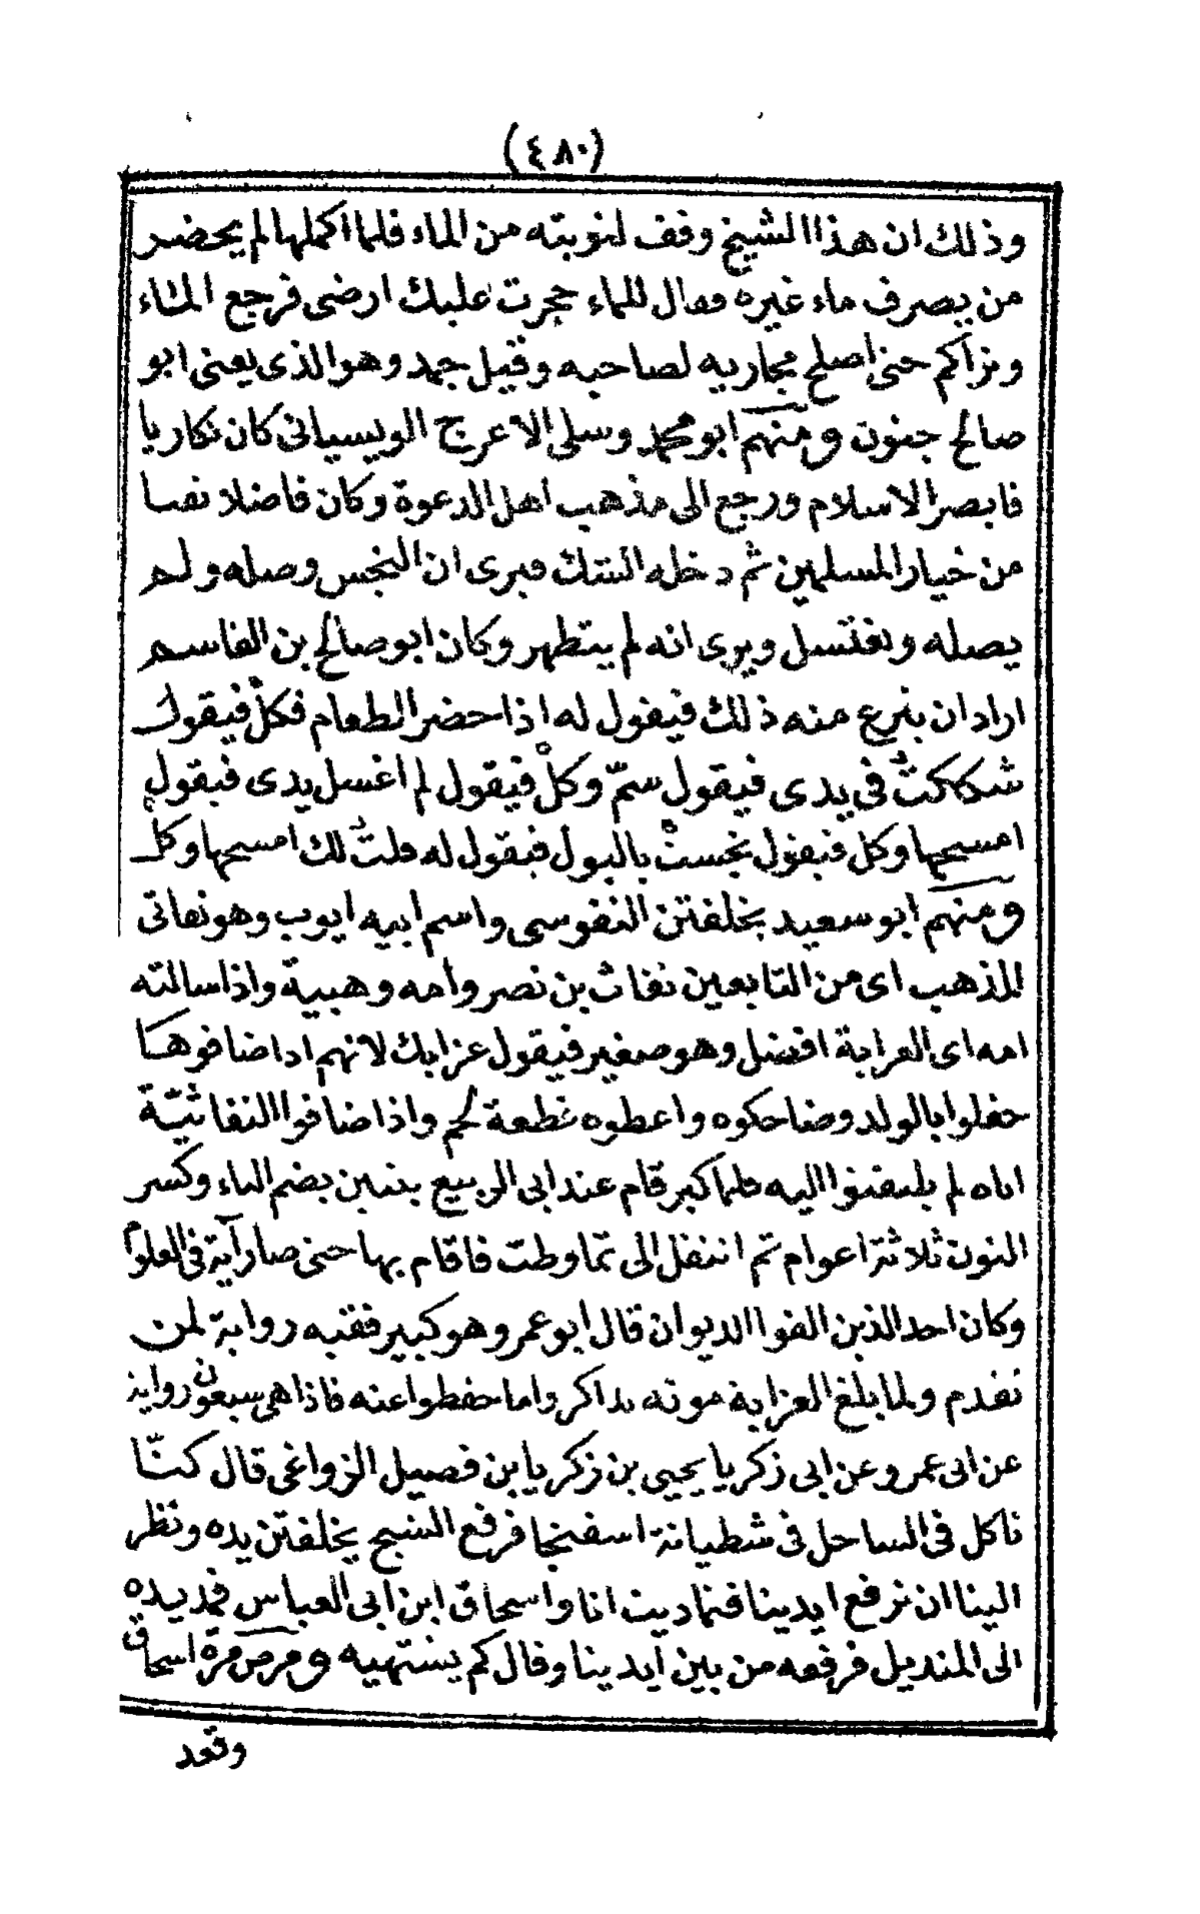 (٤٨٠)
وذلك ان هذا الشيخ وقف لنوبته من الماء فلما اكملها لم يحضر
من يصرف ماء غيره فقال للماء حجرت عليك ارضى فرجع الماء
وتراكم حتى اصلح مجاريه لصاحبه وقيل جمد وهو الذى يعنى ابو
صالح جنون ومنهم ابو محمد وسلى الاعرج الويسيانى كان نكاريا
فابصر الاسلام ورجع الى مذهب اهل الدعوة وكان فاضلا نفسا
من خيار المسلمين ثم دخله الشك فيرى ان النجس وصله ولم
يصله ويغتسل ويرى انه لم يتطهر وكان ابو صالح بن القاسم
اراد ان ينزع منه ذلك فيقول له اذا حضر الطعام فكلْ فيقول
شككتُ فى يدى فيقول سمّ وكلْ فيقول لم اغسل يدى فيقول
امسحها وكل فيقول نجستْ بالبول فيقول له قلتُ لك امسحها وكلْ
ومنهم ابو سعيد يخلفتن النفوسى واسم ابيه ايوب وهو نفاثى
المذهب اى من التابعين نفاث بن نصر وامه وهبية واذا سالته
امه اى العزابة افضل وهو صغير فيقول عزابك لانهم اذا ضافوها
حفلوا بالولد وضاحكوه واعطوه قطعة لحم واذا ضافوا النفاثيّة
اباه لم يلتفتوا اليه فلما كبر قام عند ابى الربيع بتنين بضم الباء وكسر
النون ثلاثة اعوام ثم انتقل الى تماوطت فاقام بها حتى صار آية فى العلوم
وكان احد الذين الفوا الديوان قال ابو عمرو هو كبير فقيه رواية لمن
تقدم ولما بلغ العزابة موته تذاكروا ما حفظوا عنه فاذا هى سبعون رواية
عن ابى عمرو وعن ابى زكريا يحيى بن زكريا بن فصيل الزواغى قال كنّا
ناكل فى الساحل فى شطيانة اسفنجا فرفع الشيخ يخلفتن يده ونظر
الينا ان نرفع ايدينا فتماديت انا واسحاق ابن ابى العباس فمد يده
الى المنديل فرفعه من بين ايدينا وقال كم يشتهيه ومرض مرة اسحاق
وقعد